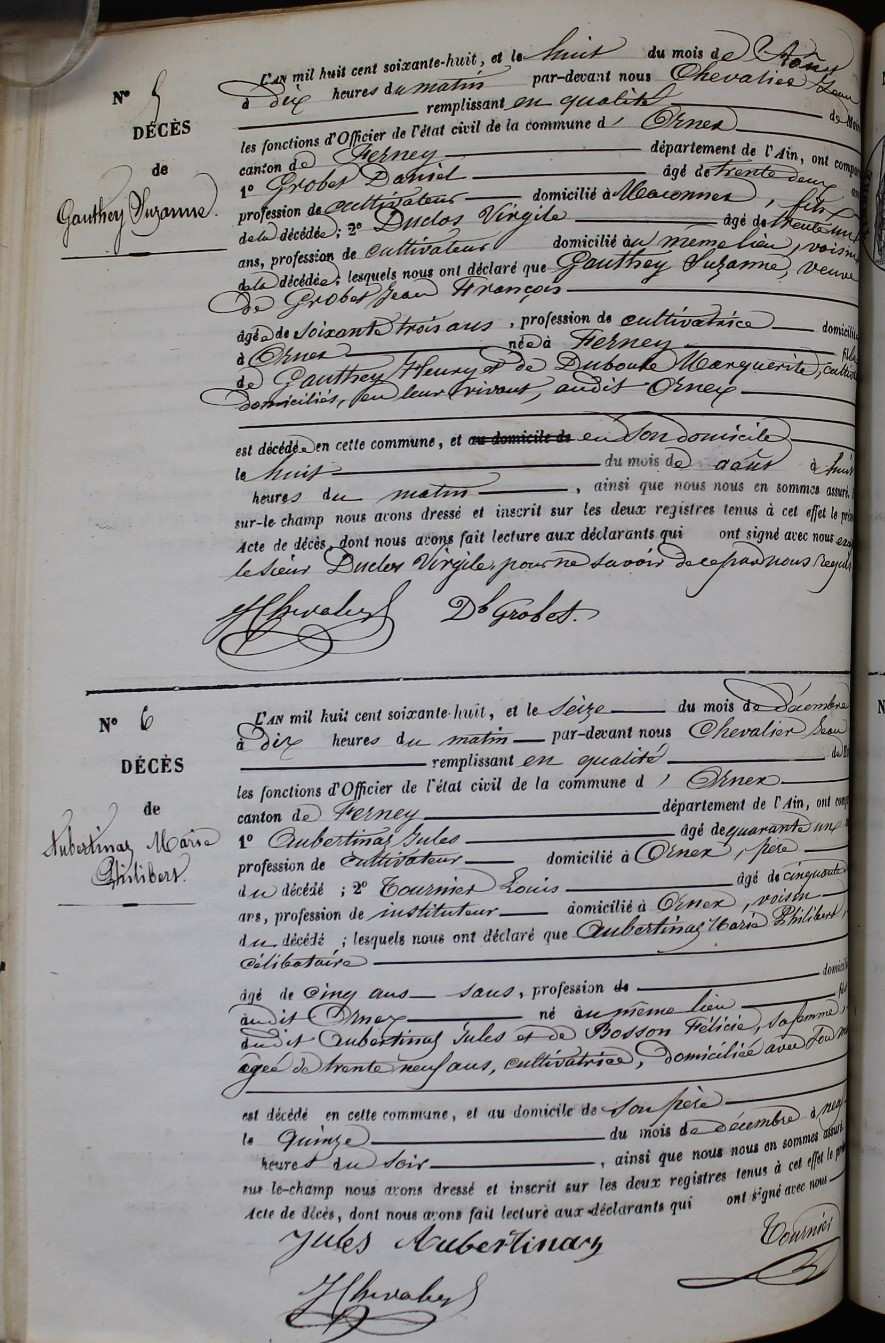 N° 5
DÉCÈS
de
Gauthey Suzanne.
L'AN mil huit cent soixante-huit, et le huit du mois de Août
à Dix heures du matin par-devant nous Chevalier Jean
remplissant en qualité de
les fonctions d'Officier de l'état civil de la commune d' Ornex
canton de Ferney département de l'Ain, ont comp
1° Grobet Daniel âgé de trente deux
profession de cultivateur domicilié à Maconnex, fils
de la décédée; 2° Duclos Virgile âgé de trente un
ans, profession de cultivateur domicilié au même lieu, voisin
de la décédée; lesquels nous ont déclaré que Gauthey Suzanne, veuve
de Grobet Jean François
âgée de soixante trois ans, profession de cultivatrice domicilié
à Ornex née à Ferney fille
de Gauthey Henry et de Duboule Marguerite,
domiciliés, en leur vivant, audit Ornex
est décédée en cette commune, et au domicile de en son domicile
le huit du mois de août à huit
heures du matin, ainsi que nous nous en sommes assuré,
sur-le champ nous avons dressé et inscrit sur les deux registres tenus à cet effet le
Acte de décès, dont nous avons fait lecture aux déclarants qui ont signé avec nous
le sieur Duclos Virgile, pour ne savoir de ce par nous requis
J Chevalier Dl Grobet.
N° 6
DÉCÈS
de
Aubertinaz Marie
Philibert.
L'AN mil huit cent soixante-huit, et le seize du mois de décembre
à Dix heures du matin par-devant nous Chevalier Jean
remplissant en qualité de
les fonctions d'Officier de l'état civil de la commune d' Ornex
canton de Ferney département de l'Ain, ont comp
1° Aubertinaz Jules âgé de quarante un
profession de cultivateur domicilié à Ornex, père
du décédé; 2° Tournier Louis âgé de cinquante
ans, profession de instituteur domicilié à Ornex, voisin
du décédé; lesquels nous ont déclaré que Aubertinaz Marie Philibert,
célibataire
âgé de cinq ans sans, profession de domicilié
audit Ornex né au même lieu fils
dudit Aubertinaz Jules et de Bosson Félicie, sa femme,
agée de trente neuf ans, cultivatrice, domiciliée avec son
est décédé en cette commune, et au domicile de son père
le quinze du mois de décembre à neuf
heures du soir, ainsi que nous nous en sommes assuré
sur-le-champ nous avons dressé et inscrit sur les deux registres tenus à cet effet le
Acte de décès, dont nous avons fait lecture aux déclarants qui ont signé avec nous
Jules Aubertinaz Tournier
J Chevalier